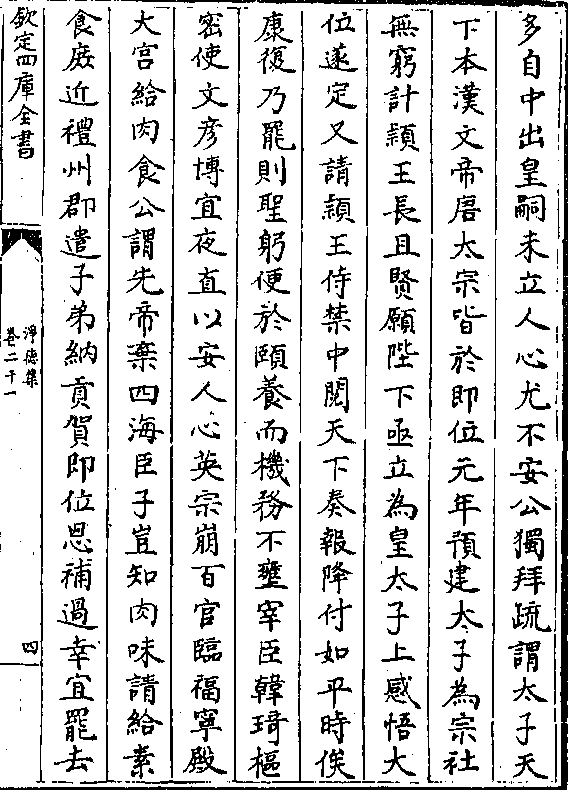 多自中出皇嗣未立人心尤不安公獨拜疏謂太子天
下本漢文帝唐太宗皆於即位元年預建太子為宗社
無窮計頴王長且賢願陛下亟立為皇太子上感悟大
位遂定又請頴王侍禁中閱天下奏報降付如平時俟
康復乃罷則聖躬便於頤養而機務不壅宰臣韓琦樞
密使文彦博宜夜直以安人心英宗崩百官臨福寧殿
大官給肉食公謂先帝棄四海臣子豈知肉味請給素
食庶近禮州郡遣子弟納貢賀即位恩補過幸宜罷去
欽定四庫全書
淨德集
卷二十一
四